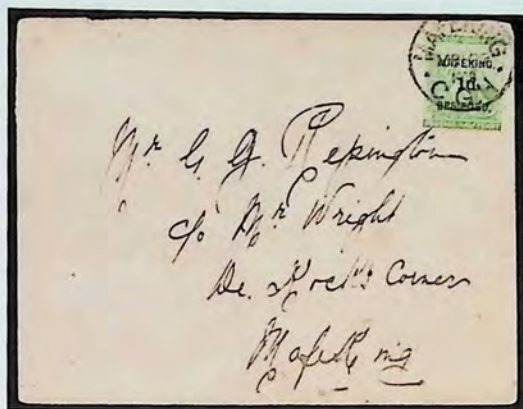 MAFEKING
C.G.H
MAFEKING,
1d.
BESIEGED.
Mr G. G. Repington
c/o Mr Wright
De Kock's Corner
Mafeking